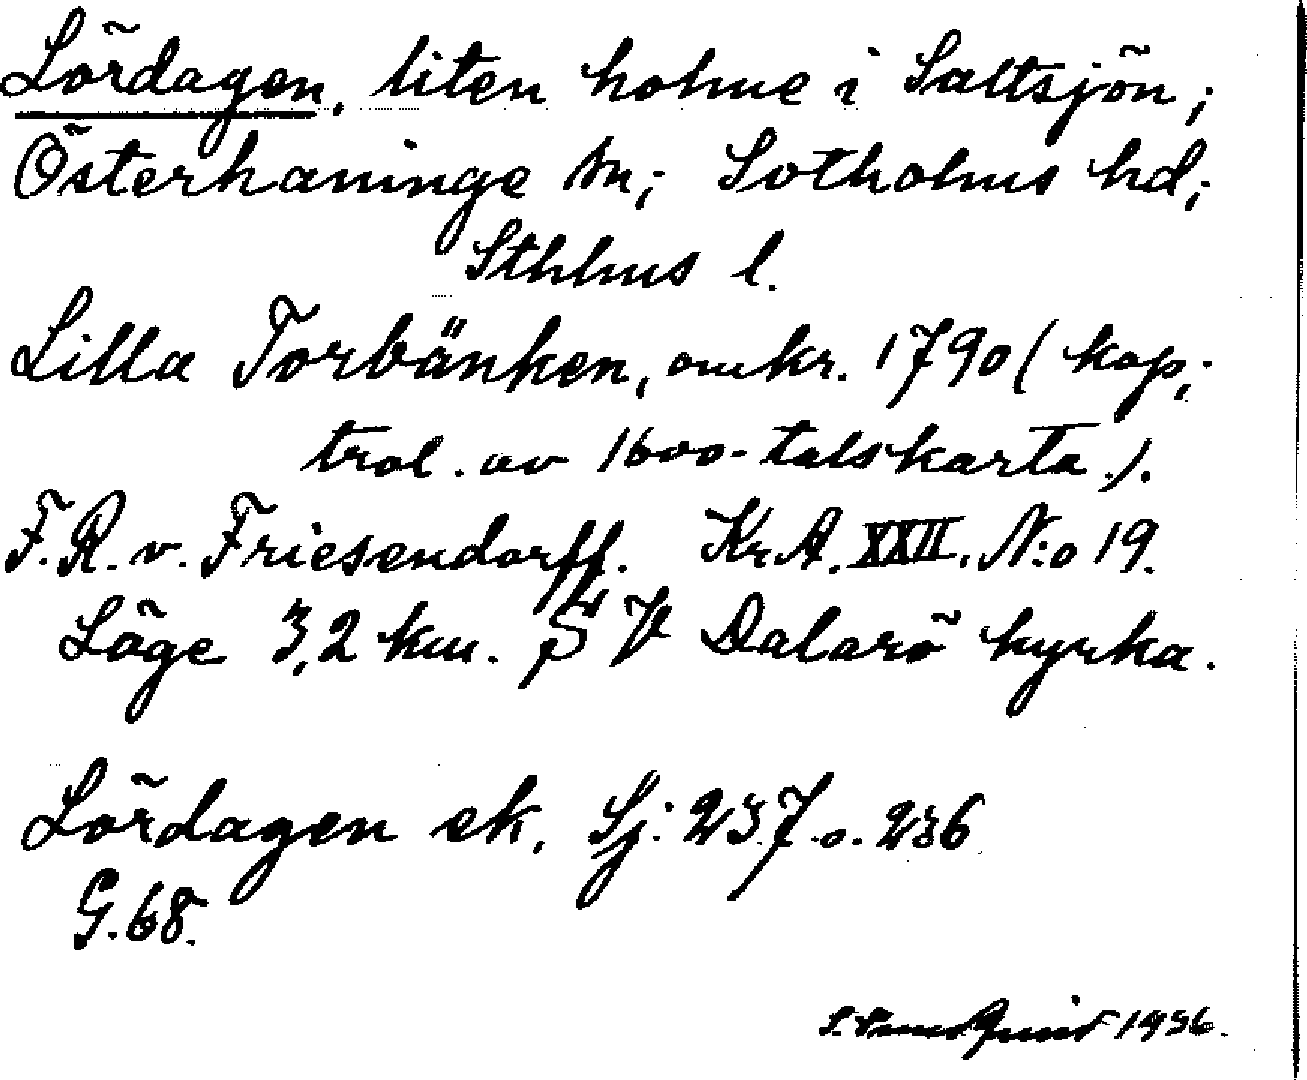 Lördagen, liten holme i Saltsjön;
Österhaninge sn; Sotholms hd;
Sthlms l.
Lilla Torbänken, omkr. 1790 ( kop;
trol. av 1600-talskarta ).
F. R. v. Friesendorff. Kr. A. XXII. N:o 19.
Läge 3,2 km. S V Dalarö kyrka.
Lördagen ek. Sj: 237 o. 236
G. 68.
1936.